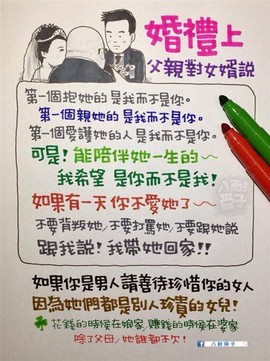 婚禮上
父親對女婿説
第一個抱她的是我而不是你。
第一個親她的是我而不是你。
第一個愛護她的人是我而不是你。
可是！能陪伴她一生的~
我希望是你而不是我！
如果有一天你不愛她了~
不要背叛她/不要打罵她/不要跟她説
跟我説！我帶她回家!!
如果你是男人請善待珍惜你的女人
因為她們都是別人珍貴的女兒！
花錢的時侯在娘家、賺錢的時侯在婆家
除了父母/她誰都不欠！